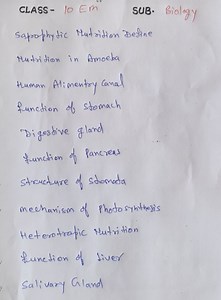 CLASS- 10 Em SUB. Biology
Saprophytic Nutrition Define
Nutrition in Amoeba
Human Alimentry Canal
function of Stomach
Digestive gland
function of Pancreas
Structure of Stomata
mechanism of Photosynthesis
Heterotrofic Nutrition
function of Liver
Salivary Gland